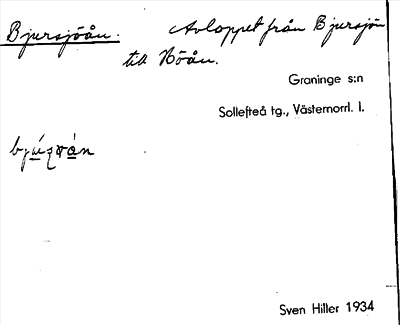 Bjursjöån. Avloppet från Bjursjön
till Nöån.
Graninge s:n
Sollefteå tg., Västernorrl. l.
Sven Hiller 1934